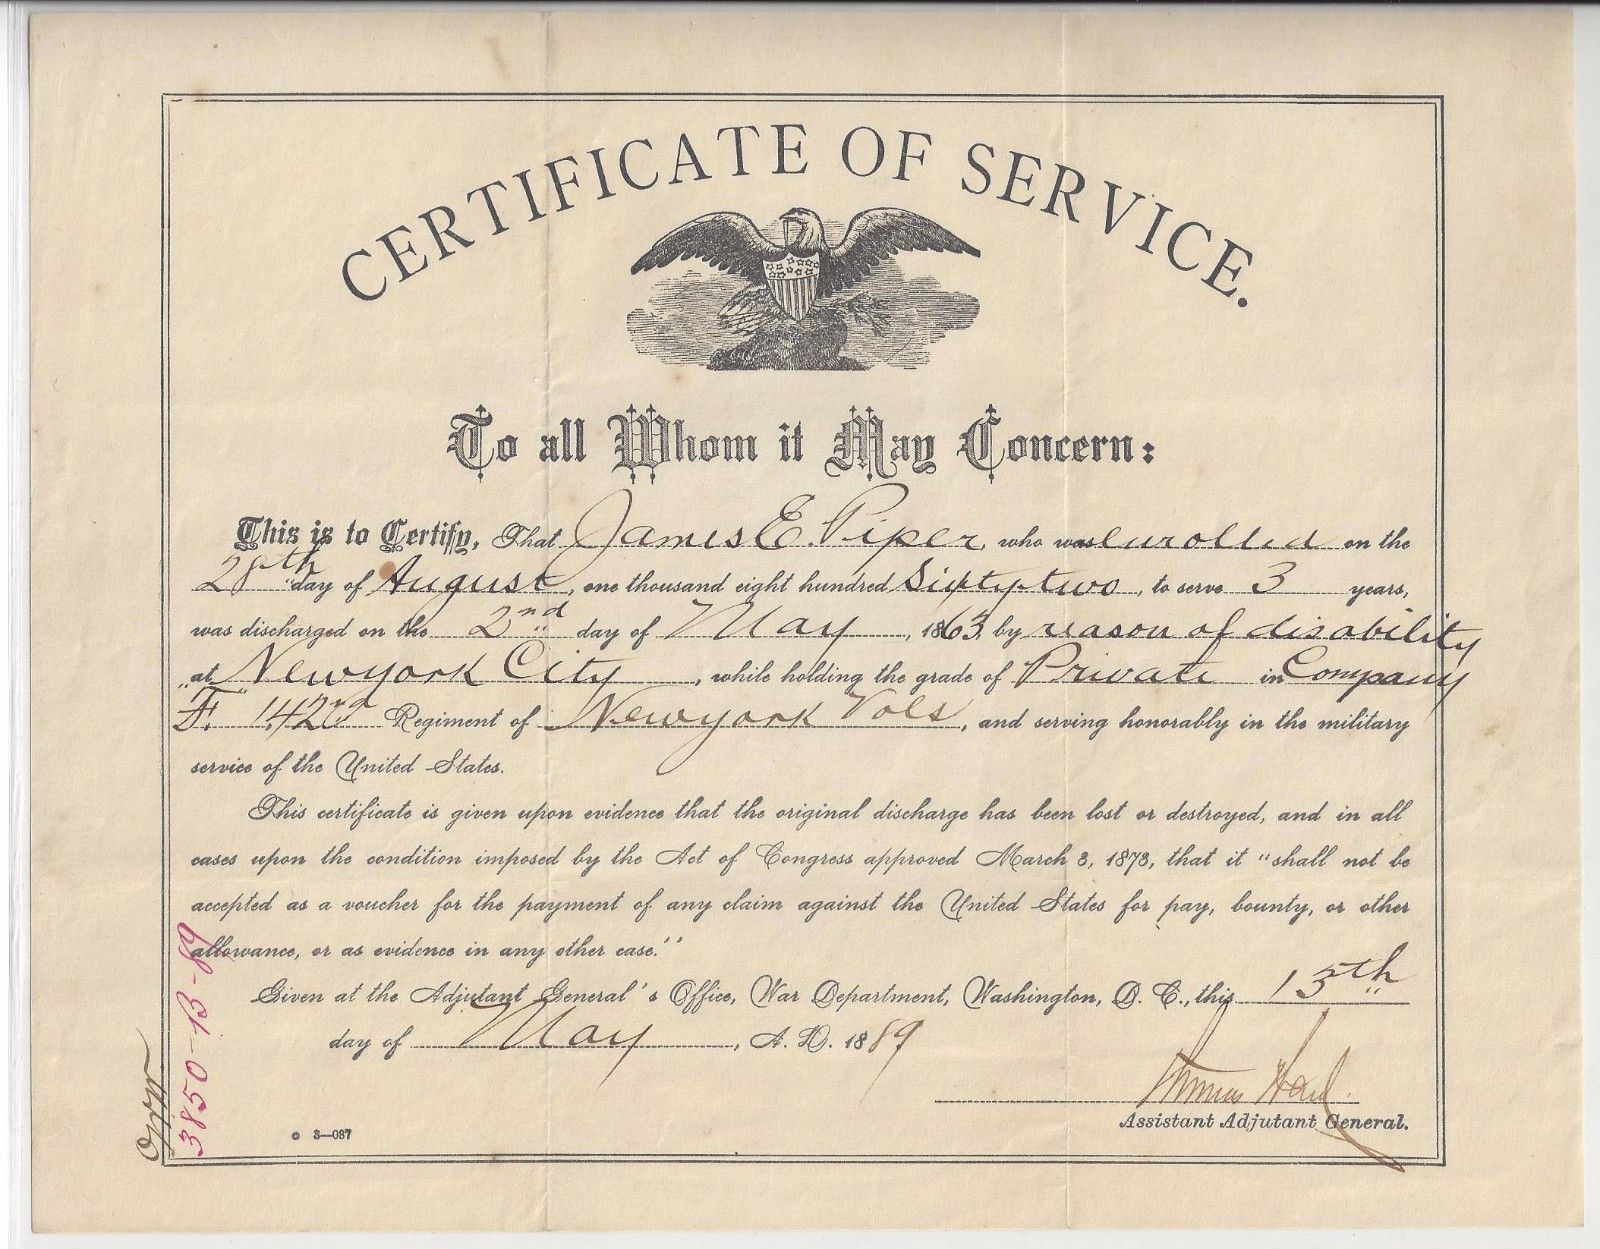 CERTIFICATE OF SERVICE.
To all Whom it May Concern:
This is to Certify, That James E. Piper, who was enrolled on the
28th day of August, one thousand eight hundred Sixty-two, to serve 3 years,
was discharged on the 2nd day of May, 1863, by reason of disability
at New york City, while holding the grade of Private in Company
F. 142nd Regiment of New york Vols, and serving honorably in the military
service of the United States.
This certificate is given upon evidence that the original discharge has been lost or destroyed, and in all
cases upon the condition imposed by the Act of Congress approved March 3, 1873, that it "shall not be
accepted as a voucher for the payment of any claim against the United States for pay, bounty, or other
allowance, or as evidence in any other case."
Given at the Adjutant General's Office, War Department, Washington, D. C., this 15th
day of May, A. D. 1889
Thomas Ward.
Assistant Adjutant General.
3—087
3850-B-89